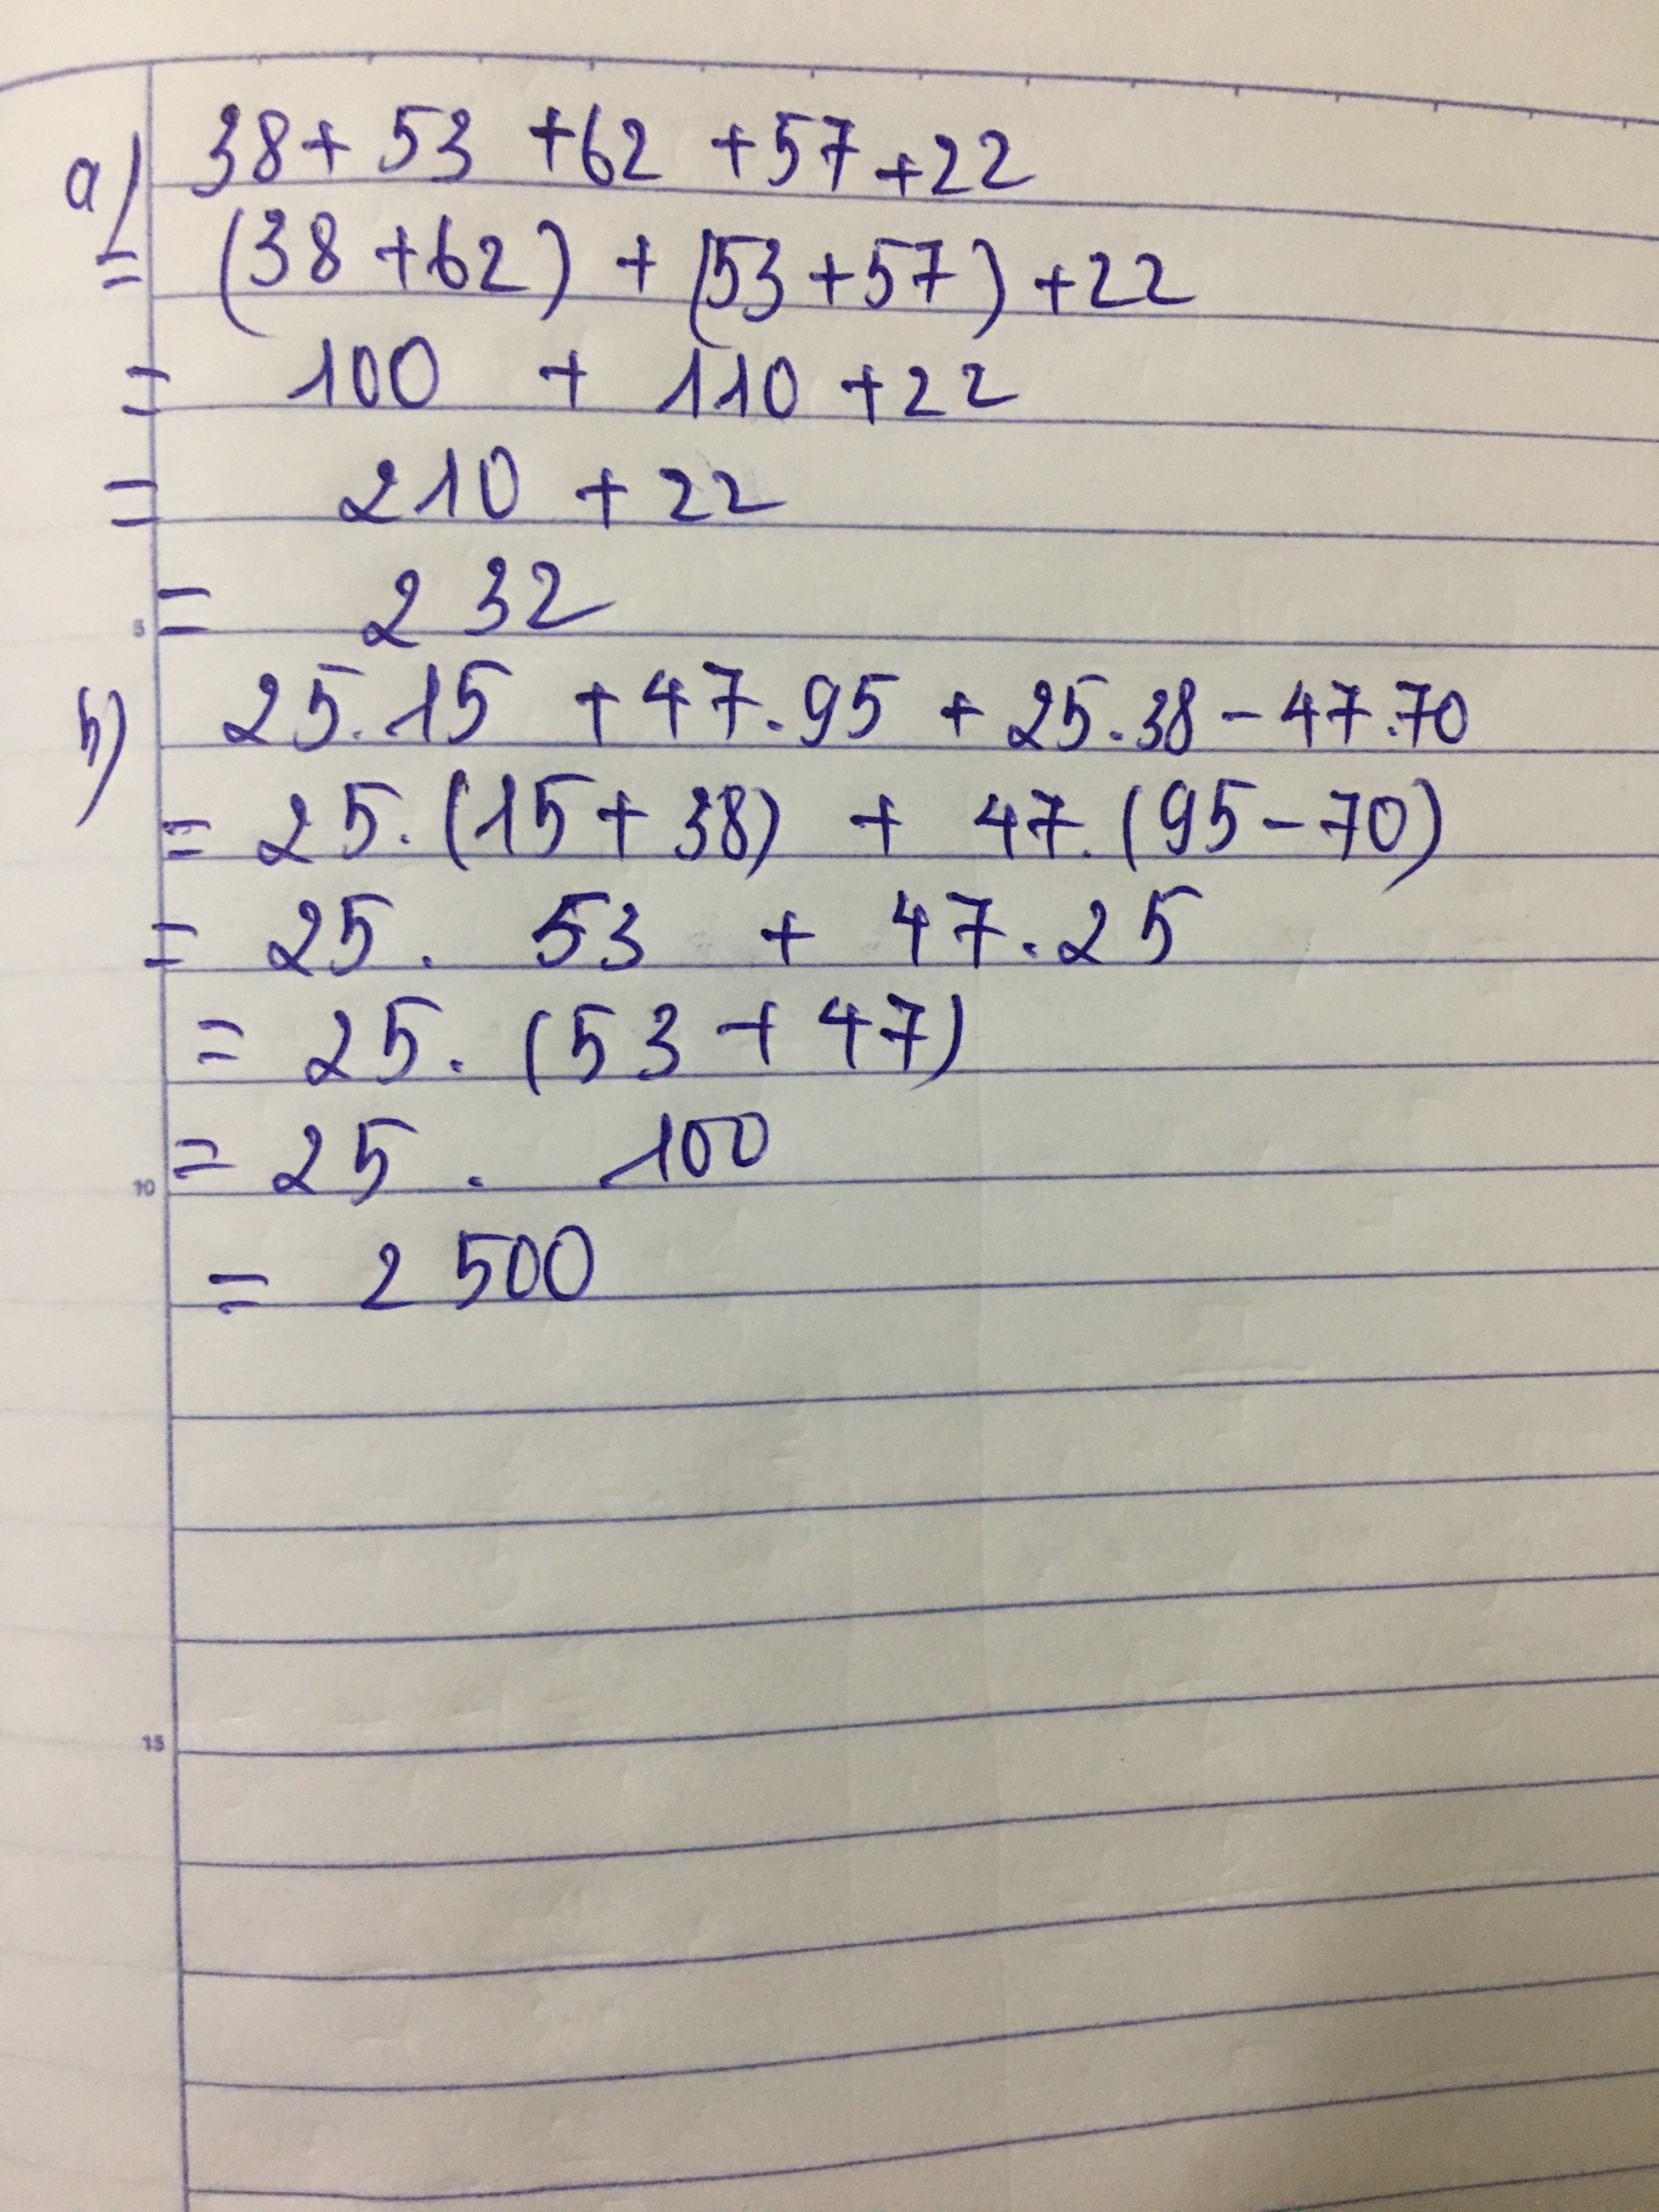 a) 38 + 53 + 62 + 57 + 22
= (38 + 62) + (53 + 57) + 22
= 100 + 110 + 22
= 210 + 22
5 = 232
b) 25.15 + 47.95 + 25.38 - 47.70
= 25.(15 + 38) + 47.(95 - 70)
= 25. 53 + 47.25
= 25. (53 + 47)
10 = 25 . 100
= 2500
15